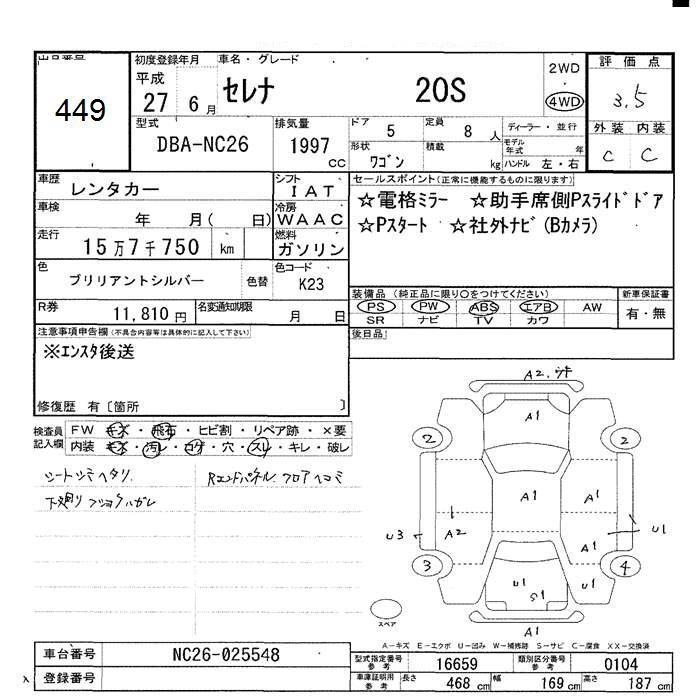 出品番号
449
初度登録年月
平成
27 6 月
車名・グレード
セレナ 20S
2WD
4WD
評価点
3.5
外装 内装
C C
型式
DBA-NC26
排気量
1997 CC
ドア
5
定員
8 人
形状
ワゴン
積載
kg
ディーラー・並行
モデル年式 年
ハンドル 左・右
車歴
レンタカー
シフト
IAT
車検
年 月( 日)
冷房
WAAC
走行
15万7千750 km
燃料
ガソリン
色
ブリリアントシルバー
色替
色コード
K23
R券
11,810円
名変通知期限
月 日
セールスポイント(正常に機能するものに限ります)
☆電格ミラー ☆助手席側Pスライドドア
☆Pスタート ☆社外ナビ(Bカメラ)
装備品(純正品に限り○をつけてください)
PS PW ABS エアB AW
SR ナビ TV カワ
新車保証書
有・無
後日品
注意事項申告欄(不具合内容等は具体的に記入して下さい)
※エンスタ後送
修復歴 有〔箇所 〕
検査員記入欄
FW キズ・飛石・ヒビ割・リペア跡・×要
内装 キズ・汚レ・コゲ・穴・スレ・キレ・破レ
シートシミヘタリ
Rエンドパネル.フロアヘコミ
A2.
A1
2
2
A1
A1
A2
U3
U1
A1
3
4
U1
S1
U1
スペア
A1
A-キズ E-エクボ U-凹み W-補修跡 S-サビ C-腐食 XX-交換済
車台番号
NC26-025548
登録番号
型式指定番号参考
16659
類別区分番号参考
0104
車庫証明用参考
長さ 468 cm
幅 169 cm
高さ 187 cm